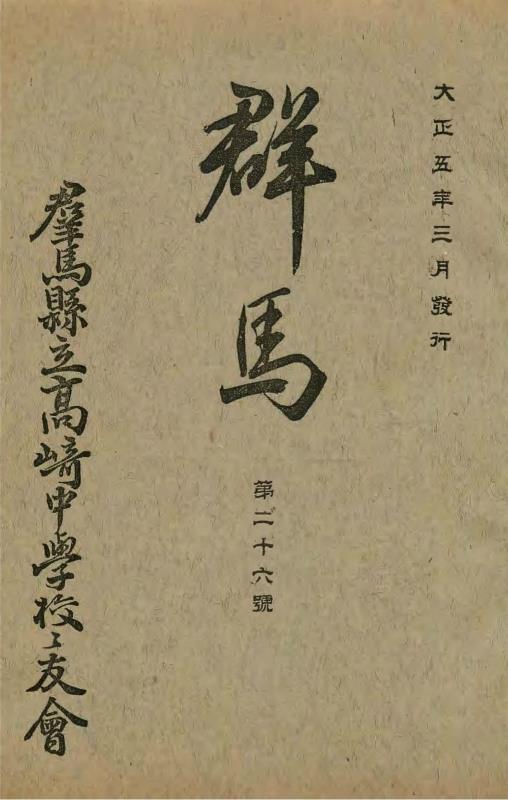 大正五年三月發行
群馬
第二十六號
羣馬縣立高﨑中學校〻友會